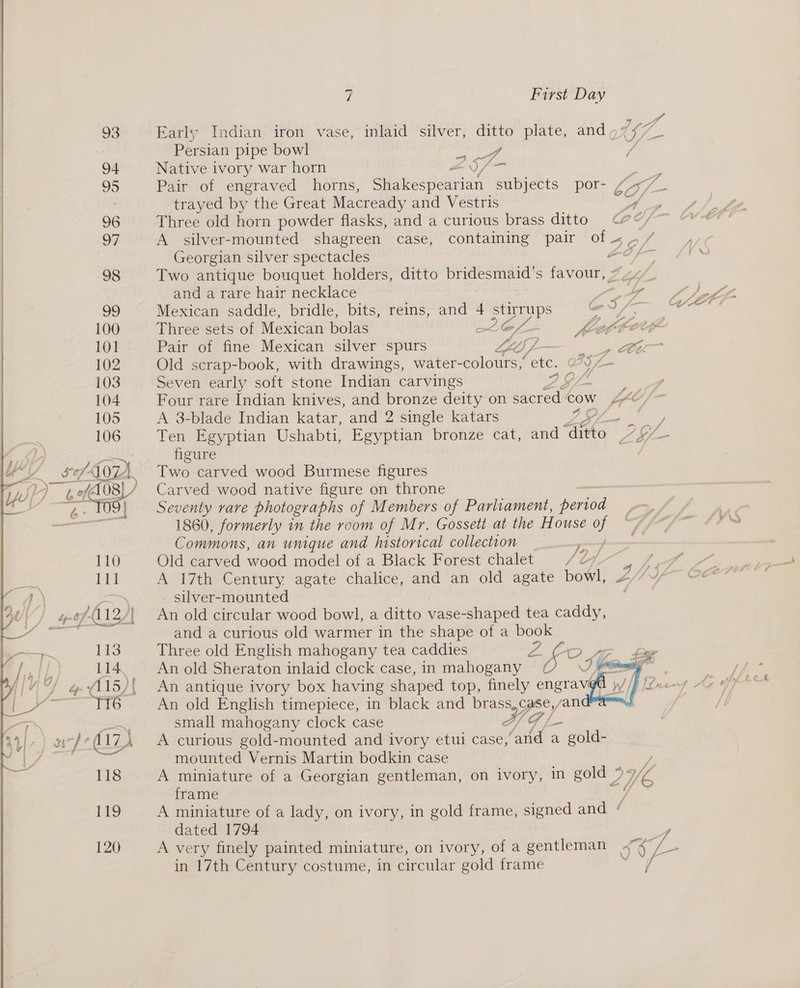 7 First Day
93 Early Indian iron vase, inlaid silver, ditto plate, and
Persian pipe bowl
94 Native ivory war horn
95 Pair of engraved horns, Shakespearian subjects por-
trayed by the Great Macready and Vestris
96 Three old horn powder flasks, and a curious brass ditto
97 A silver-mounted shagreen case, containing pair of
Georgian silver spectacles
98 Two antique bouquet holders, ditto bridesmaid's favour,
and a rare hair necklace
99 Mexican saddle, bridle, bits, reins, and 4 stirrups
100 Three sets of Mexican bolas
101 Pair of fine Mexican silver spurs
102 Old scrap-book, with drawings, water-colours, etc.
103 Seven early soft stone Indian carvings
104 Four rare Indian knives, and bronze deity on sacred cow
105 A 3-blade Indian katar, and 2 single katars
106 Ten Egyptian Ushabti, Egyptian bronze cat, and ditto
figure
107 Two carved wood Burmese figures
108 Carved wood native figure on throne
109 Seventy rare photographs of Members of Parliament, period
1860, formerly in the room of Mr. Gossett at the House of
Commons, an unique and historical collection
110 Old carved wood model of a Black Forest chalet
111 A 17th Century agate chalice, and an old agate bowl,
silver-mounted
112 An old circular wood bowl, a ditto vase-shaped tea caddy,
and a curious old warmer in the shape of a book
113 Three old English mahogany tea caddies
114 An old Sheraton inlaid clock case, in mahogany
115 An antique ivory box having shaped top, finely engraved
116 An old English timepiece, in black and brass case, and
small mahogany clock case
117 A curious gold-mounted and ivory etui case, and a gold-
mounted Vernis Martin bodkin case
118 A miniature of a Georgian gentleman, on ivory, in gold
frame
119 A miniature of a lady, on ivory, in gold frame, signed and
dated 1794
120 A very finely painted miniature, on ivory, of a gentleman
in 17th Century costume, in circular gold frame